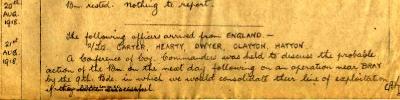 20th Bn. rested. Nothing to report.
AUG.
1918.
21st The following officers arrived from ENGLAND. —
AUG. 2/Lts. CARTER, HEARTY, DWYER, CLAYTON, HATTON.
1918. A Conference of Coy. Commanders was held to discuss the probable
action of the Bn. on the next day following on an operation near BRAY
by the 9th. Bde. in which we would consolidate their line of exploitation
if